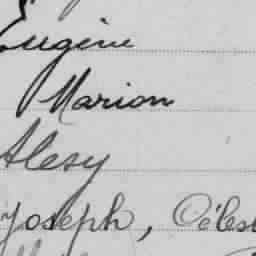 Eugène
Marion
Alesy
Joseph, Céles